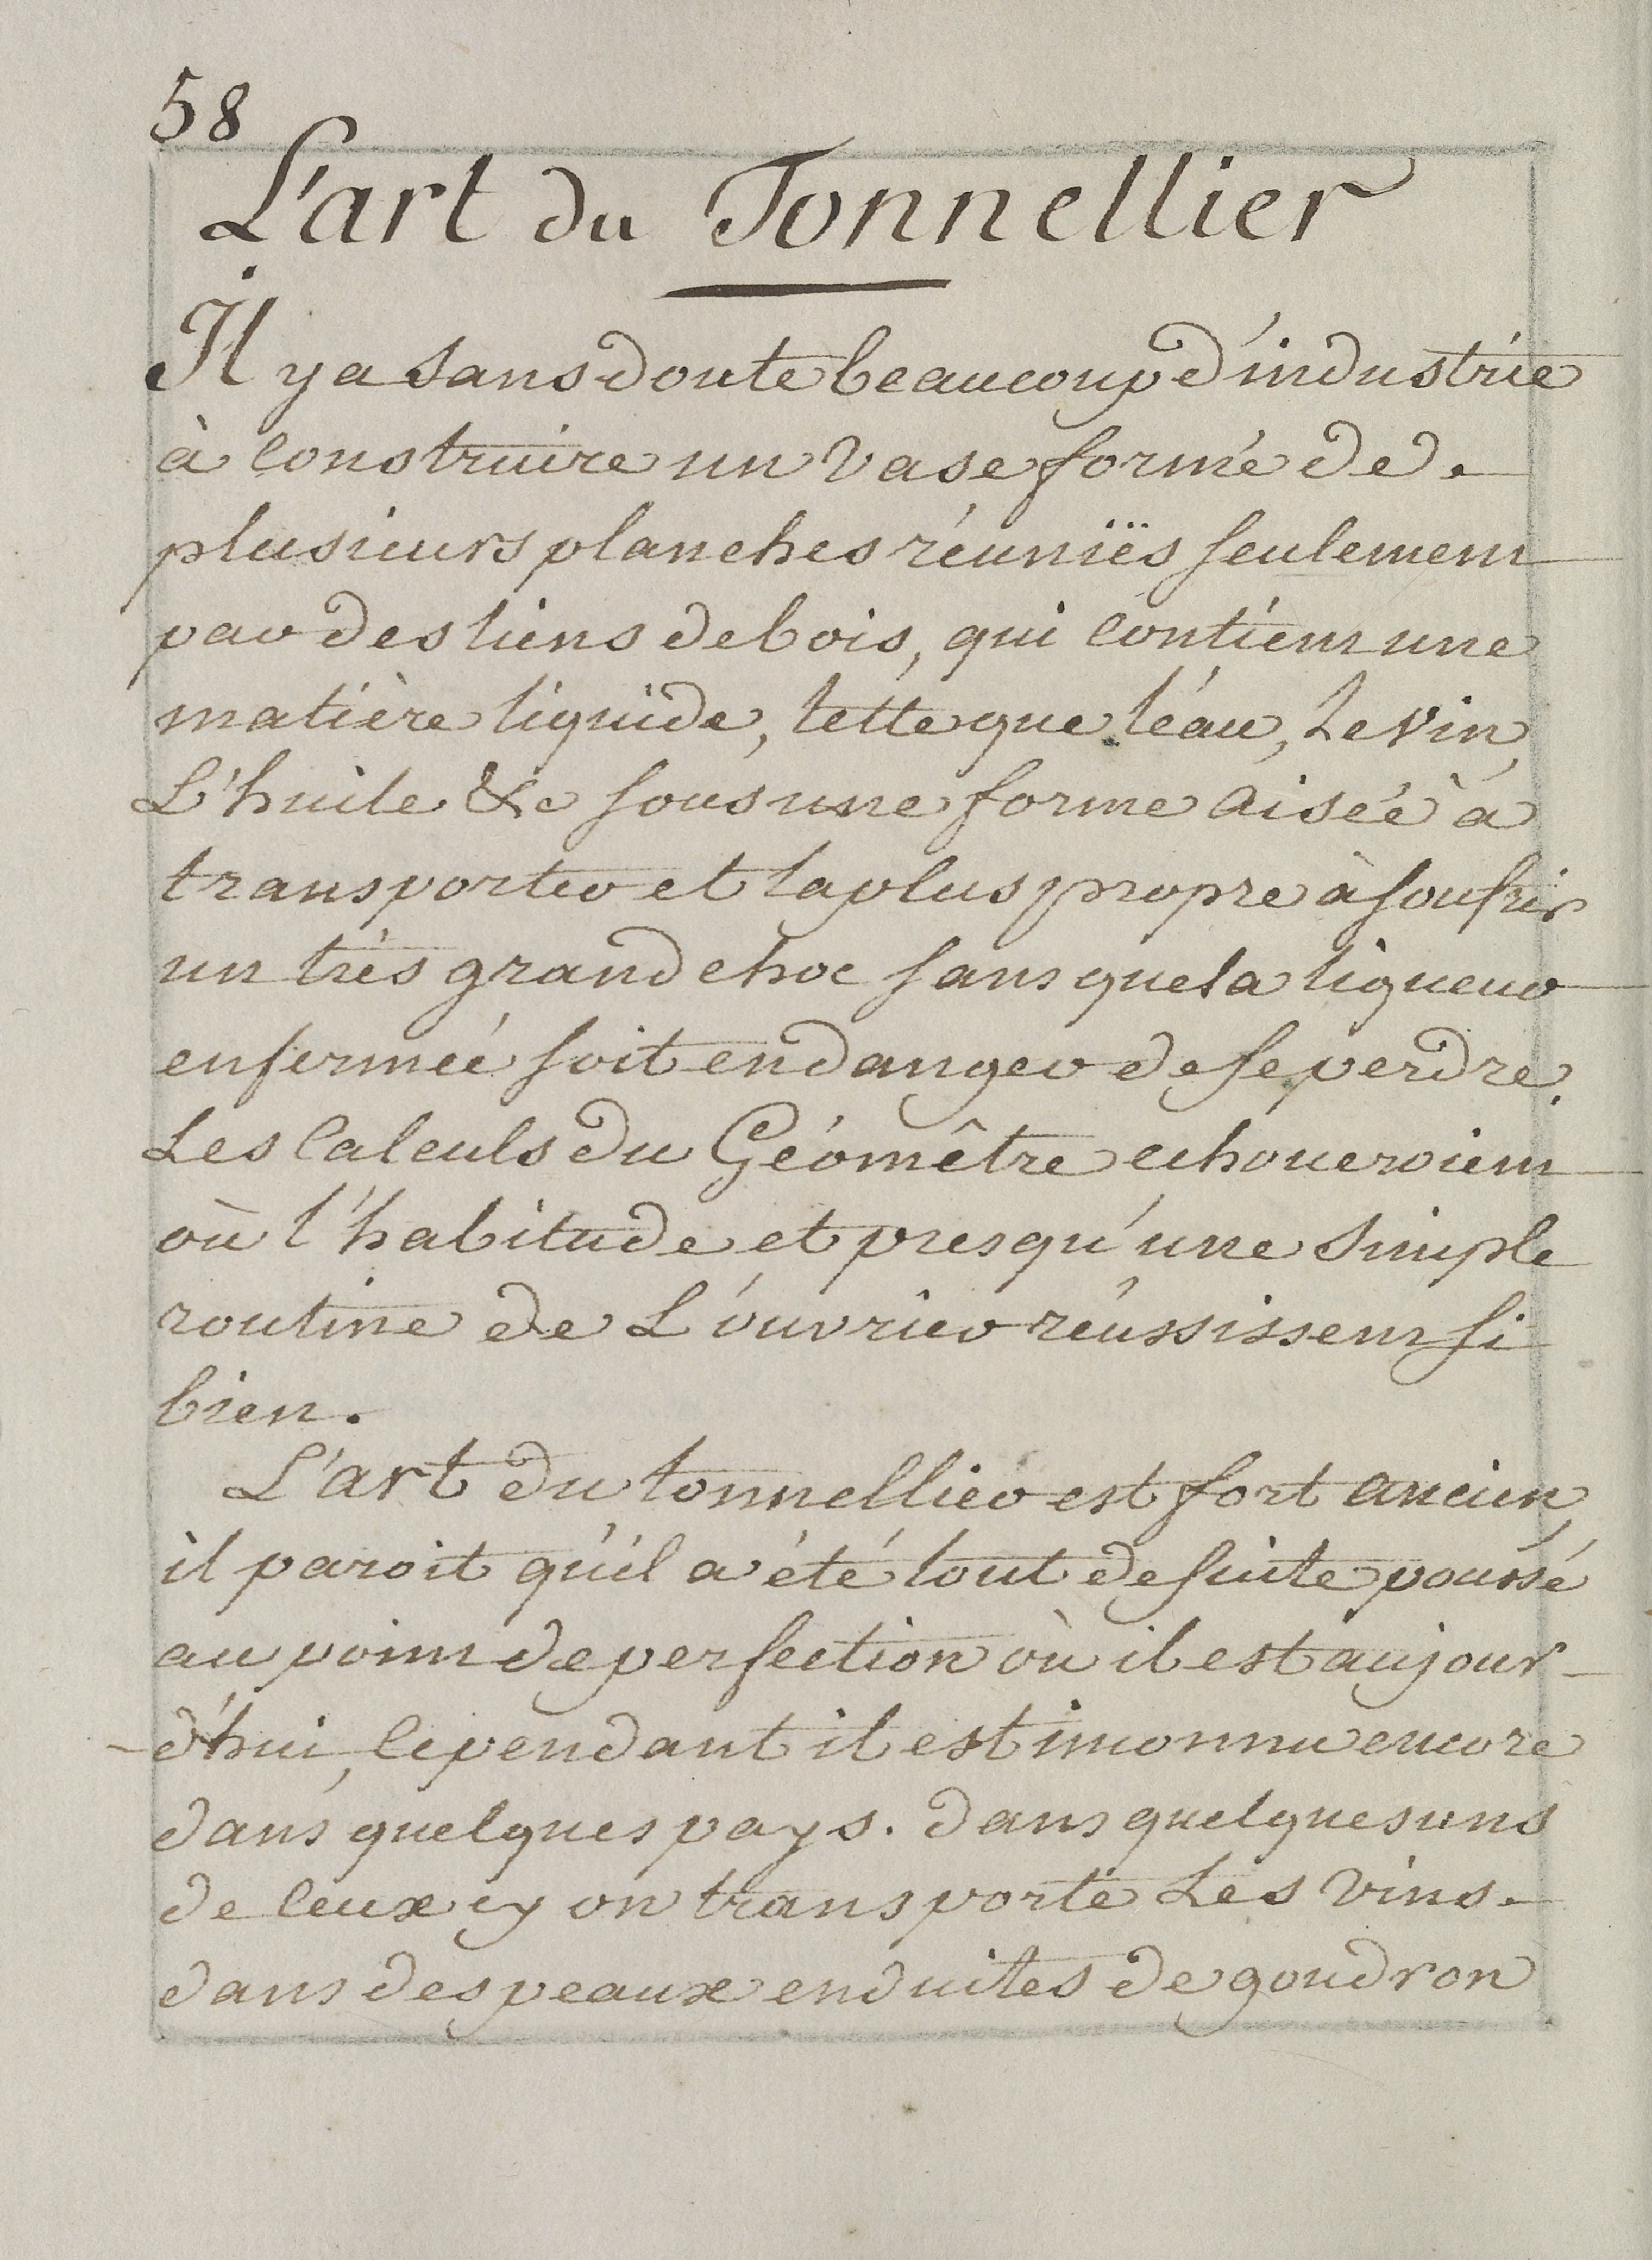 58
L'art du Tonnellier
Il y a sans doute beaucoup d'industrie
à construire un vase formé de
plusieurs planches réuniës seulement
par des liens de bois, qui contient une
matière liquide, telle que l'éau, Le vin,
L'huile &c sous une forme aisée à
transporter et la plus propre à soufrir
un très grand choc sans que la liqueur
enfermée soit en danger de se perdre.
Les calculs du Géomêtre echoueroient
où l'habitude et presqu'une simple
routine de L'ouvrier réussissent si
bien.
L'art du tonnellier est fort ancien,
il paroit qu'il a été tout de suite poussé
au point de perfection où il est aujour-
-d'hui, cependant il est inconnu encore
dans quelques pays. dans quelques uns
de ceux cy on transporte Les vins
dans des peaux enduites de goudron